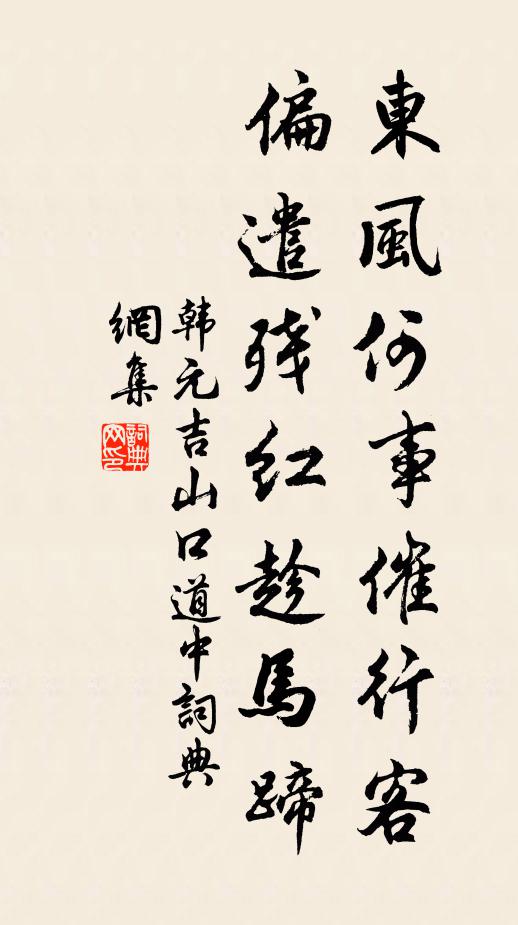 東風何事催行客
偏遣残红趁馬蹄
韩元吉山口道中詞典
網集
詞典
网印